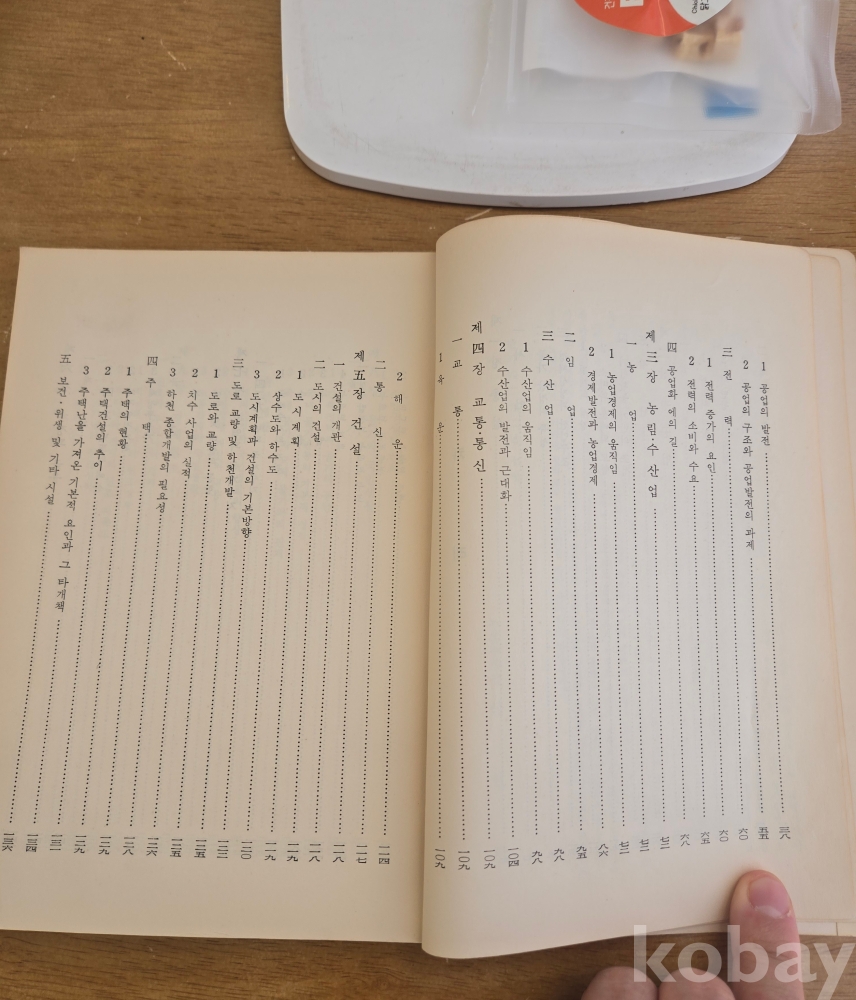 1 공업의 발전 三八
2 공업의 구조와 공업발전의 과제 五五
三 전 력 六〇
1 전력 증가의 요인 六〇
2 전력의 소비와 수요 六五
四 공업화 에의 길 六八
제 三 장 농림·수산업 七二
一 농 업 七二
1 농업경제의 움직임 七二
2 경제발전과 농업경제 八六
二 임 업 九五
三 수 산 업 九八
1 수산업의 움직임 九八
2 수산업의 발전과 근대화 一〇四
제 四 장 교통·통신 一〇九
一 교 통 一〇九
1 육 운 一〇九
2 해 운 一一四
二 통 신 一一七
제 五 장 건 설 一一八
一 건설의 개관 一一八
二 도시의 건설 一一九
1 도시 계획 一一九
2 상수도와 하수도 一二〇
3 도시계획과 건설의 기본방향 一二二
三 도로 교량 및 하천개발 一二五
1 도로와 교량 一二五
2 치수 사업의 실적 一二六
3 하천 종합개발의 필요성 一二八
四 주 택 一二九
1 주택의 현황 一二九
2 주택건설의 추이 一三一
3 주택난을 가져온 기본적 요인과 그 타개책 一三四
五 보건·위생 및 기타 시설 一三六
kobay